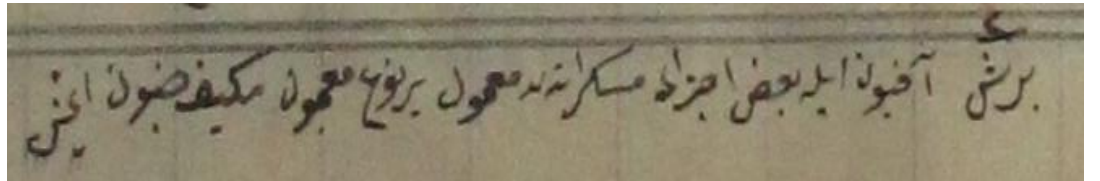 برش ع آفیون ایله بعض اجزای مسکراتدن معمول بر نوع معجون مکیف